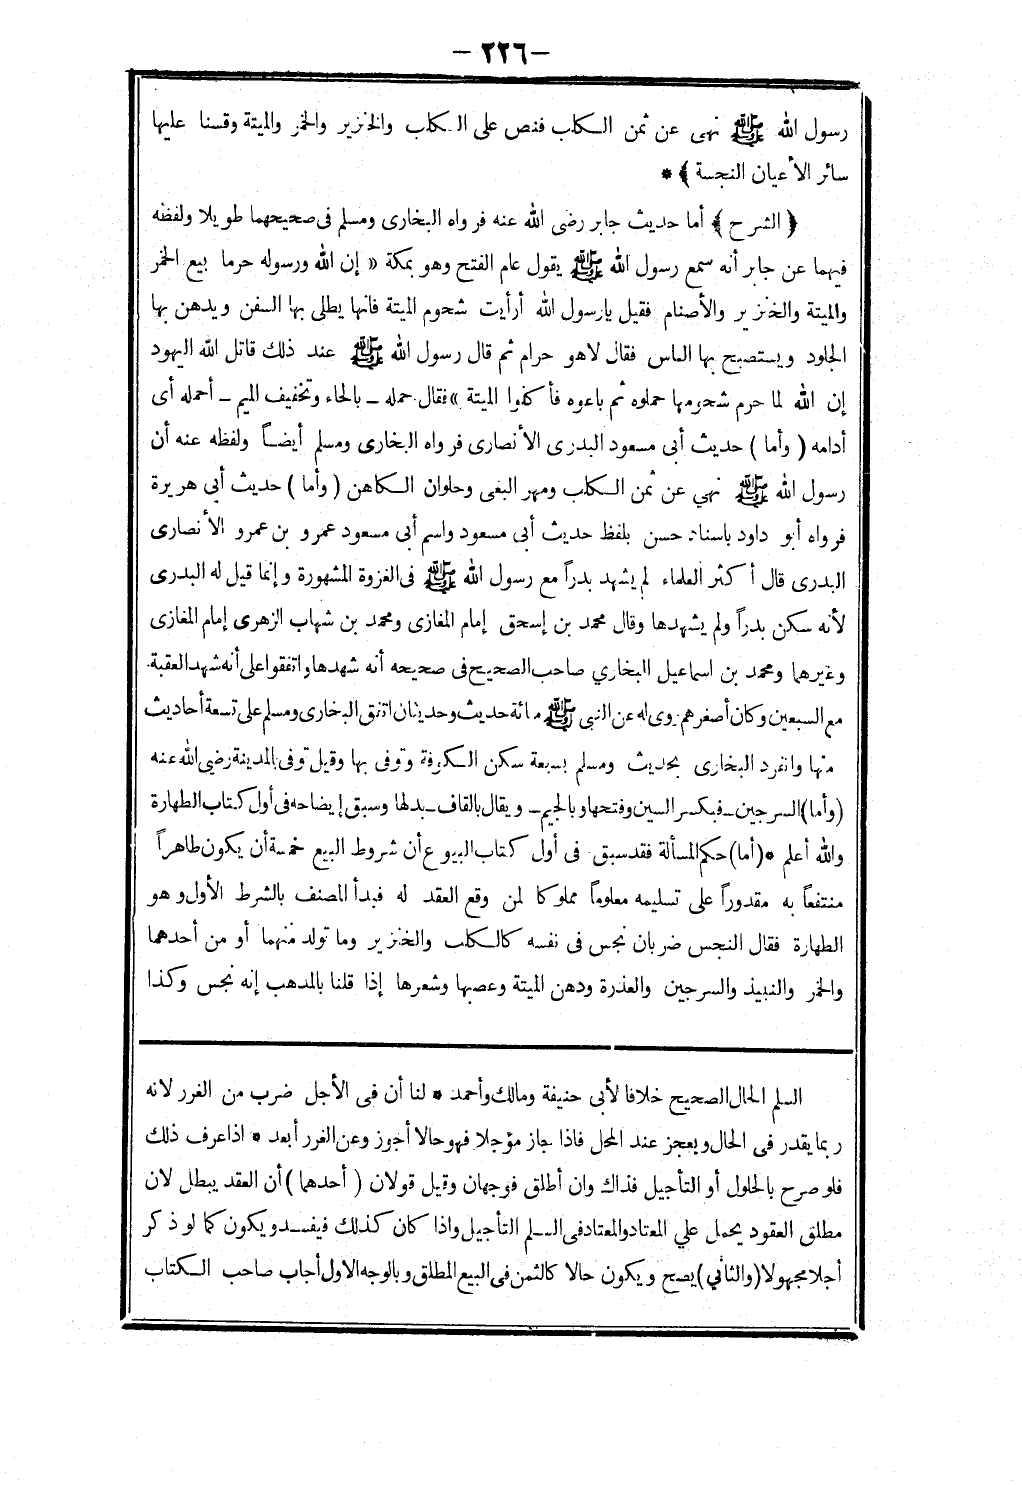 — ٢٢٦ —
رسول الله ﷺ نهى عن ثمن الكلب فنص على الكلب والخنزير والخمر والميتة وقسنا عليها
سائر الأعيان النجسة ﴾ *
﴿ الشرح ﴾ أما حديث جابر رضى الله عنه فرواه البخارى ومسلم فى صحيحهما طويلا ولفظه
فيهما عن جابر أنه سمع رسول الله ﷺ يقول عام الفتح وهو بمكة « إن الله ورسوله حرما بيع الخمر
والميتة والخنزير والأصنام فقيل يارسول الله أرأيت شحوم الميتة فانها يطلى بها السفن ويدهن بها
الجلود ويستصبح بها الناس فقال لاهو حرام ثم قال رسول الله ﷺ عند ذلك قاتل الله اليهود
إن الله لما حرم شحومها حملوه ثم باعوه فأكلوا الميتة » فقال حمله ــ بالحاء وتخفيف الميم ــ أحمله أى
أدامه ( وأما ) حديث أبى مسعود البدرى الأنصارى فرواه البخارى ومسلم أيضاً ولفظه عنه أن
رسول الله ﷺ نهي عن ثمن الكلب ومهر البغى وحلوان الكاهن ( وأما ) حديث أبي هريرة
فرواه أبو داود باسناد حسن بلفظ حديث أبى مسعود واسم أبى مسعود عمرو بن عمرو الأنصارى
البدرى قال أكثر العلماء لم يشهد بدراً مع رسول الله ﷺ فى الغزوة المشهورة وإنما قيل له البدرى
لأنه سكن بدراً ولم يشهدها وقال محمد بن إسحق إمام المغازى ومحمد بن شهاب الزهرى إمام المغازى
وغيرهما ومحمد بن اسماعيل البخاري صاحب الصحيح فى صحيحه أنه شهدها واتفقوا على أنه شهد العقبة
مع السبعين وكان أصغرهم روى له عن النبى ﷺ مائة حديث وحديثان اتفق البخارى ومسلم على تسعة أحاديث
منها وانفرد البخارى بحديث ومسلم بسبعة سكن الكوفة وتوفى بها وقيل توفى بالمدينة رضي الله عنه
(وأما) السرجين ــ فبكسر السين وفتحها وبالجيم ــ ويقال بالقاف ــ بدلها وسبق إيضاحه فى أول كتاب الطهارة
والله أعلم * (أما) حكم المسألة فقد سبق فى أول كتاب البيوع أن شروط البيع خمسة أن يكون طاهراً
منتفعاً به مقدوراً على تسليمه معلوماً مملوكا لمن وقع العقد له فبدأ المصنف بالشرط الأول وهو
الطهارة فقال النجس ضربان نجس فى نفسه كالكلب والخنزير وما تولد منهما أو من أحدهما
والخمر والنبيذ والسرجين والعذرة ودهن الميتة وعصبها وشعرها إذا قلنا بالمذهب إنه نجس وكذا
السلم الحال الصحيح خلافا لأبى حنيفة ومالك وأحمد * لنا أن فى الأجل ضرب من الغرر لانه
ربما يقدر فى الحال ويعجز عند المحل فاذا جاز مؤجلا فهو حالا أجوز وعن الغرر أبعد * اذا عرف ذلك
فلو صرح بالحلول أو التأجيل فذاك وان أطلق فوجهان وقيل قولان ( أحدهما ) أن العقد يبطل لان
مطلق العقود يحمل علي المعتاد والمعتاد فى السلم التأجيل واذا كان كذلك فيفسد ويكون كما لو ذكر
أجلا مجهولا (والثاني) يصح ويكون حالا كالثمن فى البيع المطلق وبالوجه الاول أجاب صاحب الكتاب